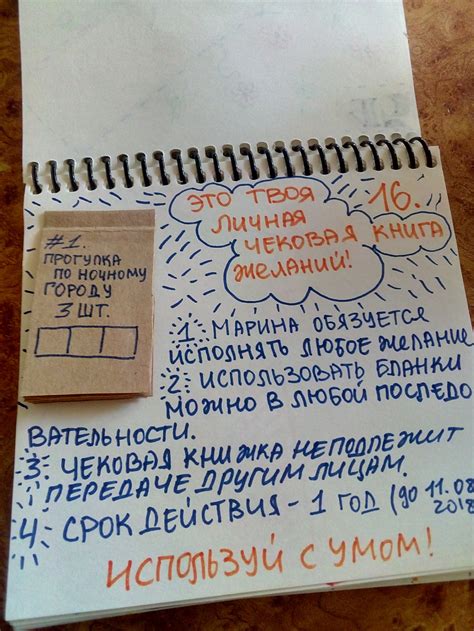 ЭТО ТВОЯ
16.
ЛИЧНАЯ
ЧЕКОВАЯ КНИГА
ЖЕЛАНИЙ!
#1.
ПРОГУЛКА
ПО НОЧНОМУ
ГОРОДУ
3 ШТ.
1. МАРИНА ОБЯЗУЕТСЯ
ИСПОЛНЯТЬ ЛЮБОЕ ЖЕЛАНИЕ
2. ИСПОЛЬЗОВАТЬ БЛАНКИ
МОЖНО В ЛЮБОЙ ПОСЛЕДО
ВАТЕЛЬНОСТИ.
3. ЧЕКОВАЯ КНИЖКА НЕПОДЛЕЖИТ
ПЕРЕДАЧЕ ДРУГИМ ЛИЦАМ.
4. СРОК ДЕЙСТВИЯ - 1 ГОД (до 11.08
2018
ИСПОЛЬЗУЙ С УМОМ!